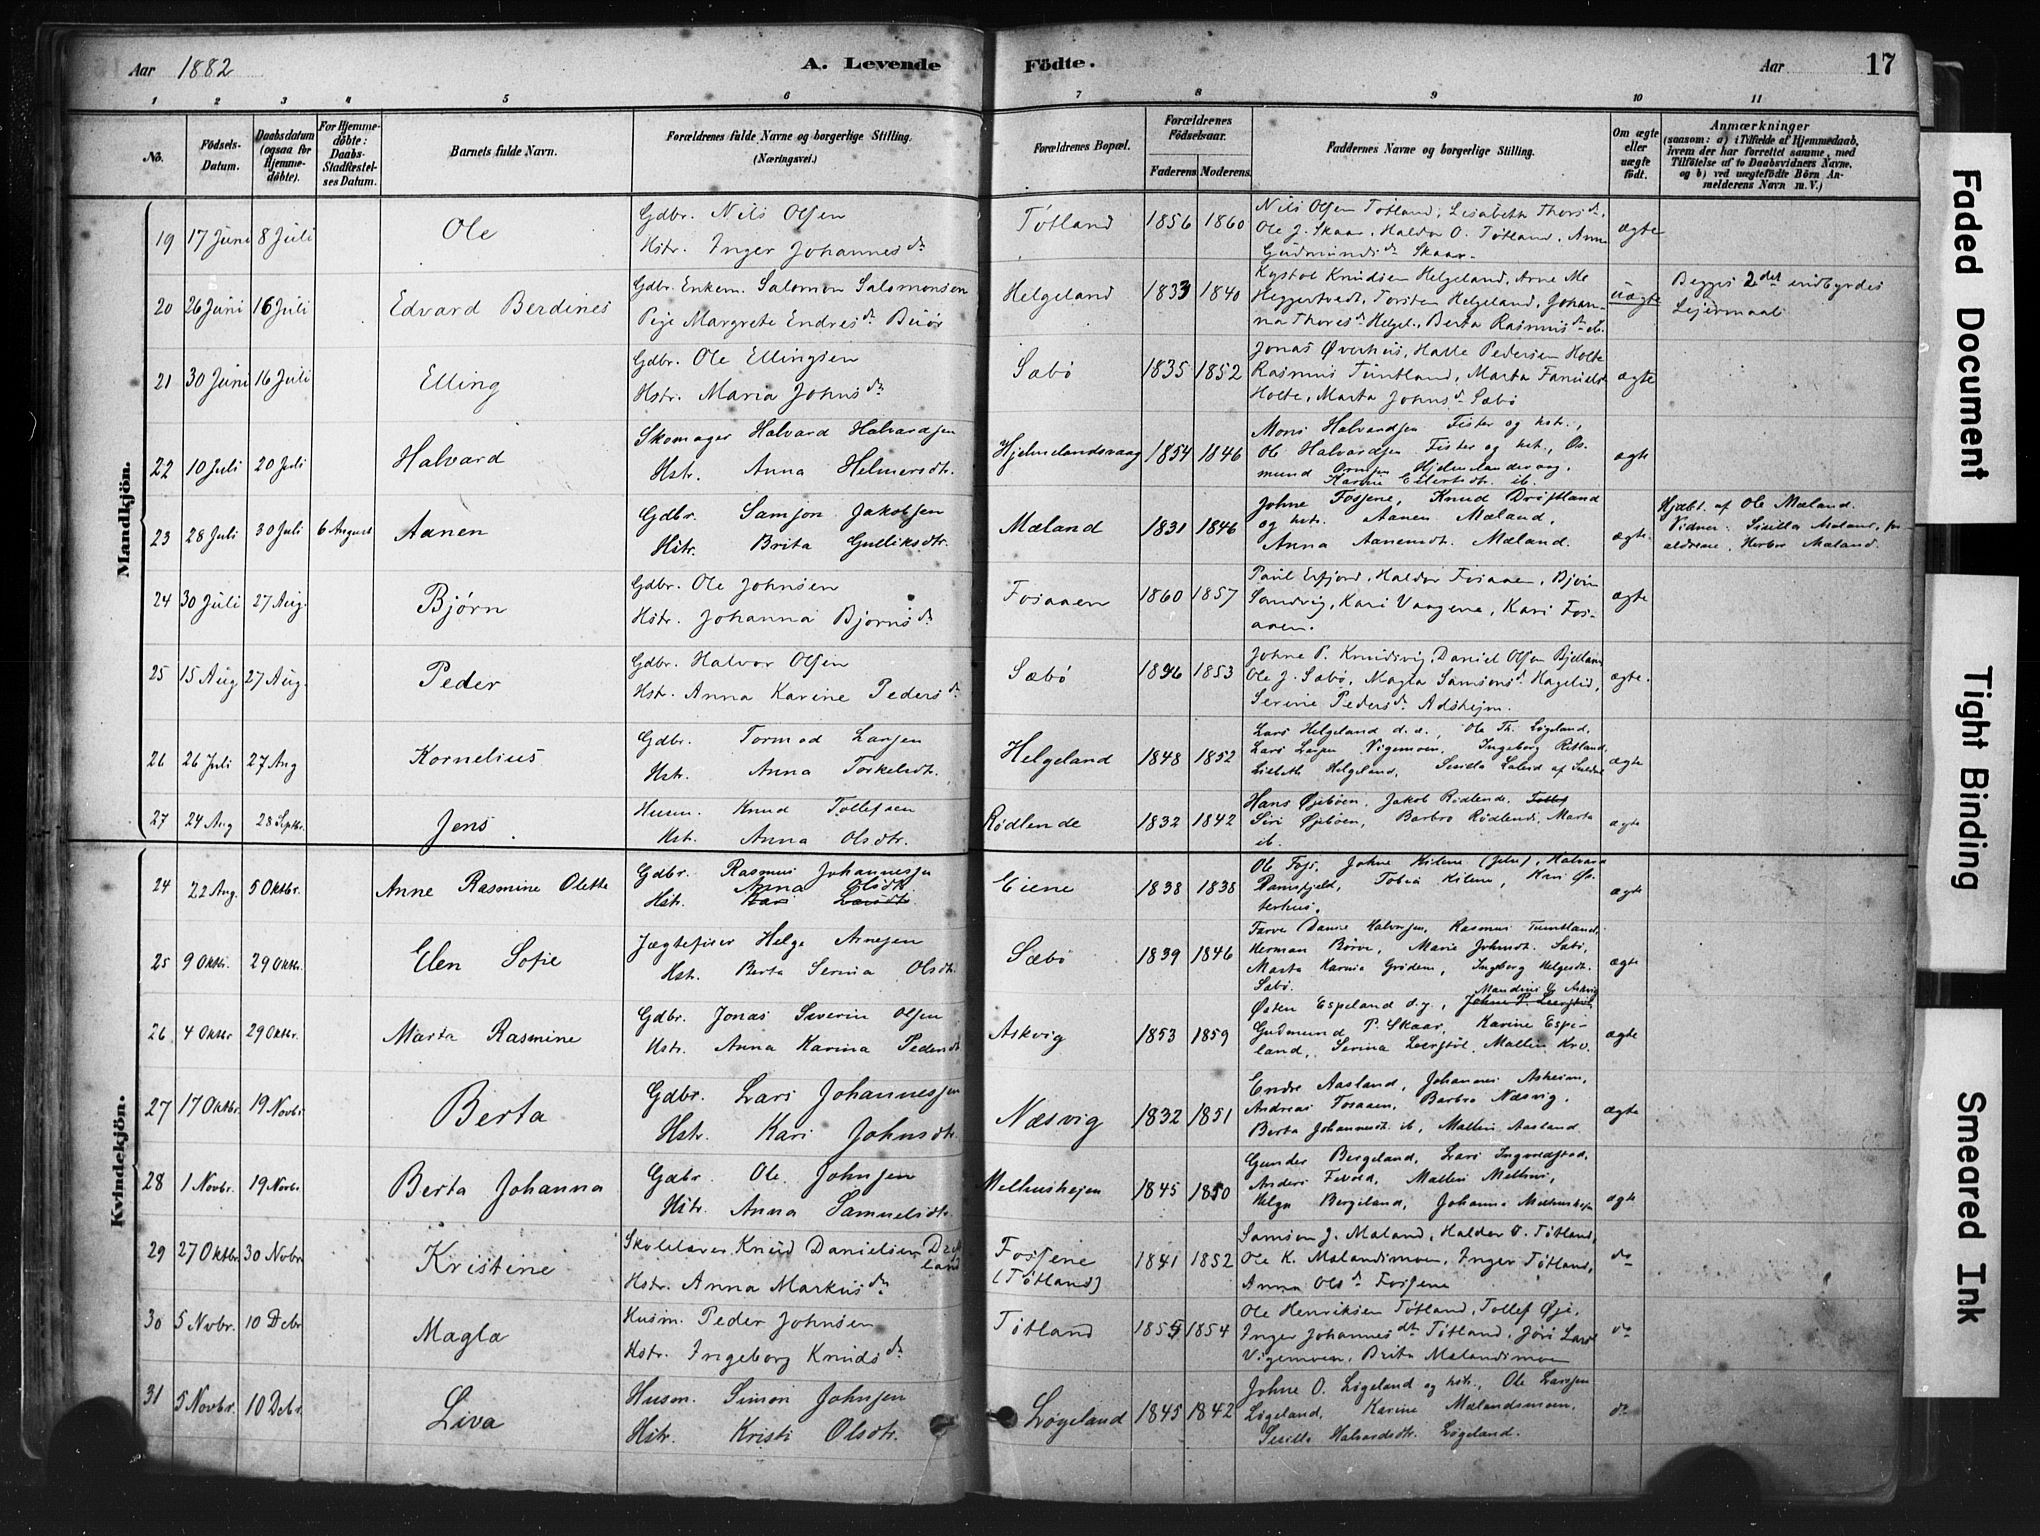 Aar 1882
A. Levende Födte.
Aar
17
1 2 3 4 5 6 7 8 9 10 11
No.
Födsels-Datum.
Daabsdatum (ogsaa for Hjemme-döbte).
For Hjemme-döbte: Daabs-Stadfæstel-ses Datum.
Barnets fulde Navn.
Forældrenes fulde Navne og borgerlige Stilling. (Næringsvei.)
Forældrenes Bopæl.
Forældrenes Födselsaar.
Faderens Moderens.
Faddernes Navne og borgerlige Stilling.
Om ægte eller uægte födt.
Anmærkninger
(saasom: a) i Tilfælde af Hjemmedaab, hvem der har forrettet samme, med Tilföielse af to Daabsvidners Navne, og b) ved uægtefödte Börn An-melderens Navn m. V.)
Mandkjön.
19 17 Juni 8 Juli Ole
Gdbr. Nils Olsen
Hstr. Inger Johannesdr
Tøtland 1856 1860
Nils Olsen Tøtland, Lisabeth Thorsdr,
Ole J. Skaar, Haldor O. Tøtland, Anna
Gudmundsdr Skaar.
ægte
20 26 Juni 16 Juli Edvard Berdines
Gdbr. Enkem. Salomon Salomonsen
Pige Margrete Endresdr Buør
Helgeland 1833 1840
Knudsen Helgeland, Arne
Torsten Helgeland, Johan-
na Thoresdr Helgel., Berta Rasmusdr ib.
uægte
Begges 2det indbyrdes
Lejermaal
21 30 Juni 16 Juli Elling
Gdbr. Ole Ellingsen
Hstr. Maria Johnsdr
Sæbø 1835 1852
Jonas Øverhus, Halle Pedersen Holte
Rasmus Tuntland, Marta
Holte, Marta Johnsdr Sæbø
ægte
22 10 Juli 20 Juli Halvard
Skomager Halvard Halvardsen
Hstr. Anna Helmersdtr.
Hjelmelandsvaag 1854 1846
Mons Halvardsen Fister og hst.,
Ole Halvardsen Fister og hst., Os-
mund Hjelmelandsvaag,
Karine Eilertsdtr. ib.
ægte
23 28 Juli 30 Juli 6 August Aanen
Gdbr. Samson Jakobsen
Hstr. Brita Gulliksdtr.
Mæland 1831 1846
Johne Fossene, Knud Driftland
og hst. Aanen Mæland,
Anna Aanensdt. Mæland.
ægte.
Hjdbt. af Ole Mæland.
Vidner. Sisilla Mæland, for-
ældrene, Mæland.
24 30 Juli 27 Aug. Bjørn
Gdbr. Ole Johnsen
Hstr. Johanna Bjørnsdr
Fosaaen 1860 1857
Paul Erfjord, Haldor Fosaaen, Bjørn
Sandvig, Kari Vaagene, Kari Fos-
aaen.
ægte
25 15 Aug 27 Aug. Peder
Gdbr. Halvor Olsen
Hstr. Anna Karine Pedersdr
Sæbø 1853
Johne P. Knudsvig, Daniel Olsen
Ole J. Sæbø, Magla Samsonsdr Hagelid,
Serine Pedersdr
ægte.
26 26 Juli 27 Aug Kornelius
Gdbr. Tormod Larsen
Hstr. Anna Torkelsdt.
Helgeland 1848 1852
Lars Helgeland d.æ., Ole Th. Løgeland,
Lars Larsen Vigemoen, Ingeborg
Lisbeth Helgeland, Sisilla
ægte
27 24 Aug 28 Septbr. Jens
Husm. Knud Tollefsen
Hst. Anna Olsdtr.
Rødlende 1832 1842
Hans Øjebøen, Jakob Rødlende, Tollef
Siri Øjebøen, Barbro Rødlende, Marta
ib.
ægte
Kvindekjön.
24 22 Aug. 5 Oktbr. Anne Rasmine Olette
Gdbr. Rasmus Johannesen
Anna Olsdt.
Hstr. Kari Larsdtr.
Eiene 1838 1838
Ole Johne Kilene (Jelse), Halvard
Ramsfjeld, Tobia Kilene, Kari Øs-
terhus.
ægte
25 9 Oktbr. 29 Oktbr. Elen Sofie
Jægtefører Helge Arnesen
Hst. Berta Serina Olsdt.
Sæbø 1839 1846
Halvorsen, Rasmus Tuntland,
Herman Børve, Marie Johnsdt. Sæbø,
Marta Karina Grødem, Ingeborg Helgesdt.
Sæbø.
ægte
26 4 Oktbr 29 Oktbr. Marta Rasmine
Gdbr. Jonas Severin Olsen
Hstr. Anna Karina Pedersdt.
Askvig 1853 1859
Østen Espeland d.y., Johne P.
Gudmund P. Skaar, Karine Espe-
land, Serina Mallin
ægte
27 17 Oktbr. 19 Novbr Berta
Gdbr. Lars Johannesen
Hstr. Kari Johnsdtr.
Næsvig 1832 1851
Endre Aasland, Johannes Askeim,
Andreas Fosaaen, Barbro Næsvig,
Berta Johannesdt. ib, Mallin Aasland.
ægte
28 1 Novbr. 19 Novbr. Berta Johanna
Gdbr. Ole Johnsen
Hstr. Anna Samuelsdtr.
Melhushejen 1845 1850
Gunder Bergeland, Lars
Anders Mallin Melhus,
Helga Bergeland, Johanna Melhushejen
ægte
29 27 Oktbr 30 Novbr Kristine
Skolelærer Knud Danielsen Drift
land
Hstr. Anna Markusdr
Fossene
(Tøtland)
1841 1852
Samson J. Mæland, Haldor O. Tøtland,
Ole K. Mælandsmoen, Inger Tøtland,
Anna Olsdr Fossene
do
30 5 Novbr. 10 Debr Magla
Husm. Peder Johnsen
Hstr. Ingeborg Knudsdr
Tøtland 1855 1854
Ole Henriksen Tøtland, Tollef Øje,
Inger Johannesdtr Tøtland, Jøri Larsd
Vigemoen, Brita Mælandsmoen
do
31 5 Novbr. 10 Debr. Liva
Husm. Simon Johnsen
Hstr. Kristi Olsdtr.
Løgeland 1845 1842
Johne O. Løgeland og hst., Ole Larsen
Løgeland, Karine Mælandsmoen,
Sisilla Halvardsdt. Løgeland.
do
Faded Document
Tight Binding
Smeared Ink